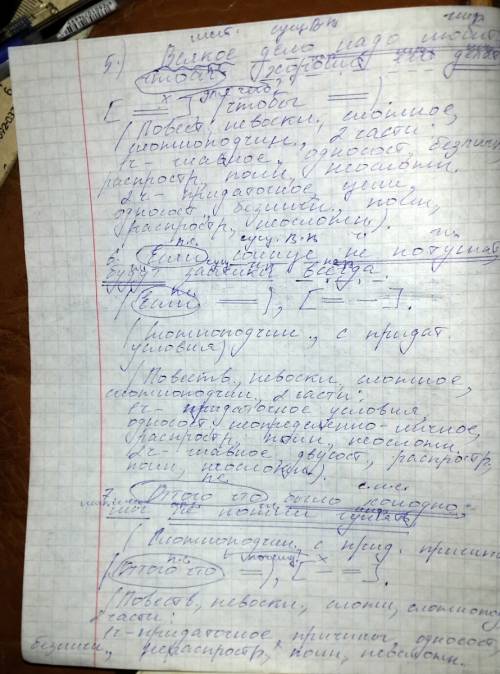 мест. сущ.В.п. нар.
5.) Всякое дело надо любить,
чтобы хорошо его делать
[ == ], (чтобы == ).
(Повест., невоскл., сложное,
сложноподчин., 2 части
1ч - главное, односост., безличн.,
распростр., полн., неосложн.
2ч - придаточное цели,
односост., безличн., полн.,
распростр., неосложн.).
п.с. сущ.В.п. ч.
6. Если солнце не потушат,
будут всегда.
(Если == ), [ = - - ].
(Сложноподчин., с придат.
условия)
(Повеств., невоскл., сложное,
сложноподчин., 2 части:
1ч - придаточное условия,
односост., неопределенно-личное,
распростр., полн., неосложн.
2ч - главное, двусост., распростр.,
полн., неосложн.).
п.с. с.к.с.
7. Оттого что было холодно,
мы не пошли гулять
(Сложноподчин., с прид. причины
(Оттого что == ), [ - = = ].
(Повеств., невоскл., сложн., сложнопод
2 части:
1ч - придаточное причины, односост.,
безличн., нераспростр., полн., неосложн.